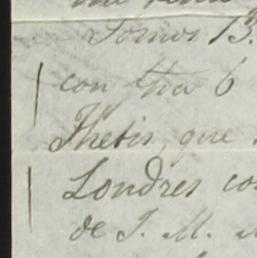 Tomos 13.
con tha 6
Thetis, que
Londres co
de J. M.